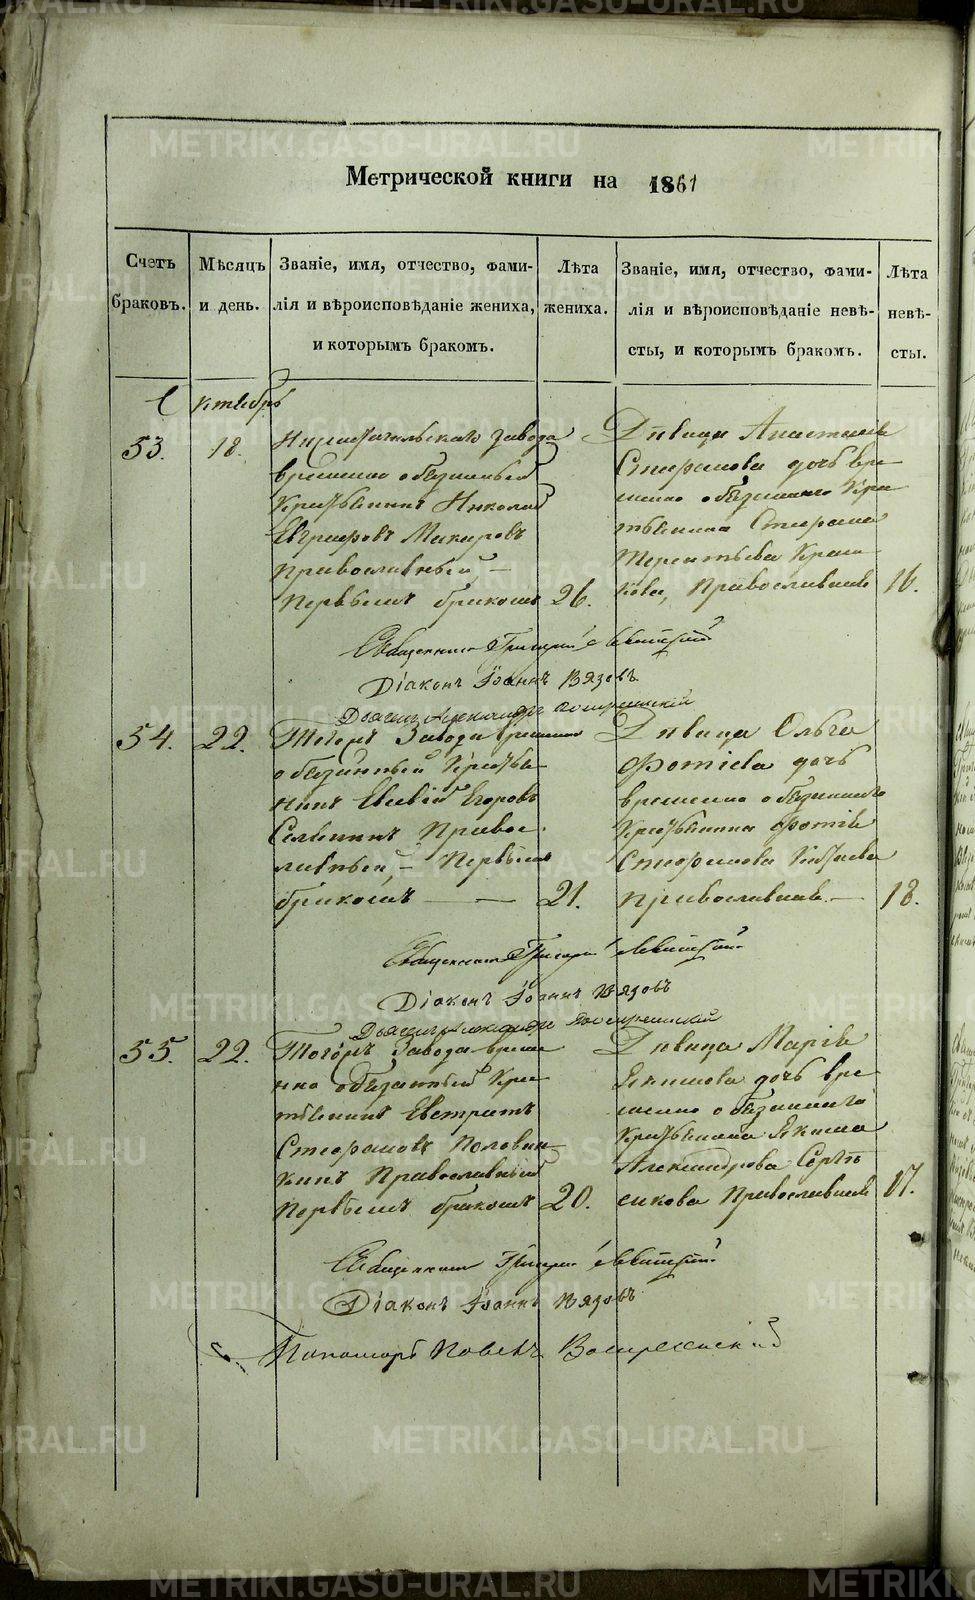 Метрической книги на 1861
Счетъ браковъ.
Мѣсяцъ и день.
Званіе, имя, отчество, фами-
лія и вѣроисповѣданіе жениха,
и которымъ бракомъ.
Лѣта жениха.
Званіе, имя, отчество, фами-
лія и вѣроисповѣданіе невѣ-
сты, и которымъ бракомъ.
Лѣта невѣ-
сты.
Октябрь
53.
18.
завода
временно обязанный
Крестьянинъ Николай
Евграфовъ Макаровъ
Православный, —
Первымъ бракомъ
26.
Дѣвица Анастасія
Стефанова дочь вре-
менно обязаннаго Кре
стьянина Стефана
Терентьева
Православная
16.
Священникъ Григорій Левитскій
Діаконъ Іоаннъ Вязовъ
54.
22.
Тогожъ Завода временно
обязанный Крестья-
нинъ Евсевій Егоровъ
Правос
лавный, — Первымъ
бракомъ — —
21.
Дѣвица Ольга
Фотіева дочь
временно обязаннаго
Крестьянина Фотія
Стефанова
Православная. —
18.
Священникъ Григорій Левитскій
Діаконъ Іоаннъ Вязовъ
55.
22.
Тогожъ Завода време
нно обязанный Кре
стьянинъ Евстратъ
Стефановъ Половин
кинъ Православный
Первымъ бракомъ
20.
Дѣвица Марія
Екимова дочь вре
менно обязаннаго
Крестьянина Екима
Александрова
Православная
17.
Священникъ Григорій Левитскій
Діаконъ Іоаннъ Вязовъ
Пономарь Павелъ Воскресенскій
METRIKI.GASO-URAL.RU